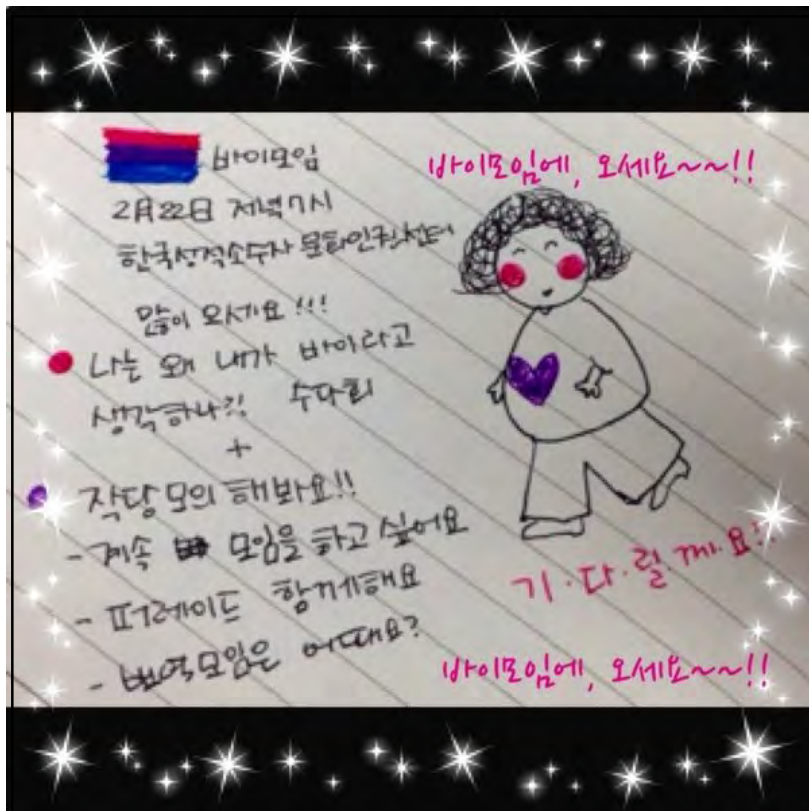 바이모임
바이모임에, 오세요~~!!
2月22日 저녁7시
한국성적소수자 문화인권센터
많이 오세요!!!
나는 왜 내가 바이라고
생각하나?! 수다회
+
작당모의 해봐요!!
- 계속 모임을 하고 싶어요
- 퍼레이드 함께해요
- 번역모임은 어때요?
기·다·릴·께·요!!
바이모임에, 오세요~~!!